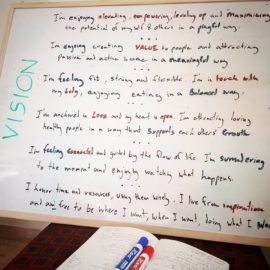 VISION
I'm enjoying elevating, empowering, leveling up and maximizing
the potential of myself & others in a playful way.
I'm enjoying creating VALUE to people and attracting
passive and active income in a meaningful way.
I'm feeling fit, strong and flexible. I'm in touch with
my body, enjoying eating in a Balanced way.
I'm anchored in Love and my heart is open. I'm attracting loving
healthy people in a way that supports each others' Growth
I'm feeling connected and guided by the flow of life. I'm surrendering
to the moment and enjoy watching what happens.
I honor time and resources, using them wisely. I live from inspiration
and am free to be where I want, when I want, doing what I